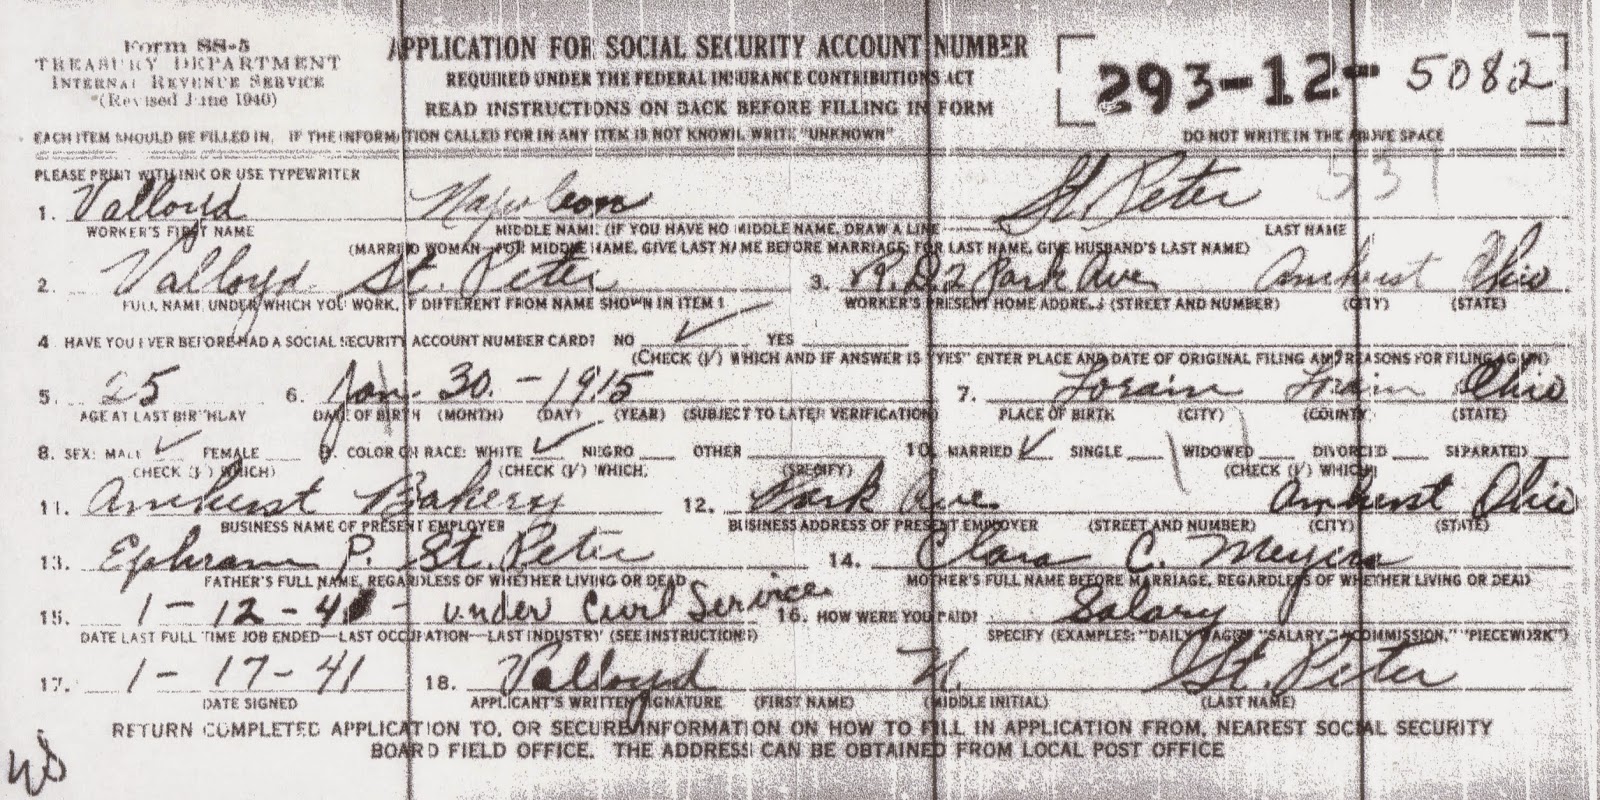 Form SS-5
TREASURY DEPARTMENT
INTERNAL REVENUE SERVICE
(Revised June 1940)
APPLICATION FOR SOCIAL SECURITY ACCOUNT NUMBER
REQUIRED UNDER THE FEDERAL INSURANCE CONTRIBUTIONS ACT
READ INSTRUCTIONS ON BACK BEFORE FILLING IN FORM
293-12-5082
EACH ITEM SHOULD BE FILLED IN. IF THE INFORMATION CALLED FOR IN ANY ITEM IS NOT KNOWN, WRITE "UNKNOWN"
DO NOT WRITE IN THE ABOVE SPACE
PLEASE PRINT WITH INK OR USE TYPEWRITER
1. Valloyd Napoleon St. Peter
WORKER'S FIRST NAME MIDDLE NAME (IF YOU HAVE NO MIDDLE NAME, DRAW A LINE LAST NAME
(MARRIED WOMAN—FOR MIDDLE NAME, GIVE LAST NAME BEFORE MARRIAGE; FOR LAST NAME, GIVE HUSBAND'S LAST NAME)
2. Valloyd St. Peter 3. R.D.2 Park Ave Amherst Ohio
FULL NAME UNDER WHICH YOU WORK, IF DIFFERENT FROM NAME SHOWN IN ITEM 1 WORKER'S PRESENT HOME ADDRESS (STREET AND NUMBER) (CITY) (STATE)
4 HAVE YOU EVER BEFORE HAD A SOCIAL SECURITY ACCOUNT NUMBER CARD? NO ✓ YES
(CHECK (√) WHICH AND IF ANSWER IS "YES" ENTER PLACE AND DATE OF ORIGINAL FILING AND REASONS FOR FILING AGAIN)
5. 25 6. Jan. 30. - 1915 7. Lorain Lorain Ohio
AGE AT LAST BIRTHDAY DATE OF BIRTH (MONTH) (DAY) (YEAR) (SUBJECT TO LATER VERIFICATION) PLACE OF BIRTH (CITY) (COUNTY) (STATE)
8. SEX: MALE ✓ FEMALE 9. COLOR OR RACE: WHITE ✓ NEGRO OTHER 10. MARRIED ✓ SINGLE WIDOWED DIVORCED SEPARATED
(CHECK (√) WHICH) (CHECK (√) WHICH) (SPECIFY) (CHECK (√) WHICH)
11. Amherst Bakery 12. Park Ave Amherst Ohio
BUSINESS NAME OF PRESENT EMPLOYER BUSINESS ADDRESS OF PRESENT EMPLOYER (STREET AND NUMBER) (CITY) (STATE)
13. Ephram P. St. Peter 14. Clara C. Meyers
FATHER'S FULL NAME, REGARDLESS OF WHETHER LIVING OR DEAD MOTHER'S FULL NAME BEFORE MARRIAGE, REGARDLESS OF WHETHER LIVING OR DEAD
15. 1-12-41 - under Civil Service 16. HOW WERE YOU PAID? Salary
DATE LAST FULL TIME JOB ENDED—LAST OCCUPATION—LAST INDUSTRY (SEE INSTRUCTIONS) SPECIFY (EXAMPLES: "DAILY WAGE," "SALARY," "COMMISSION," "PIECEWORK")
17. 1-17-41 18. Valloyd N. St. Peter
DATE SIGNED APPLICANT'S WRITTEN SIGNATURE (FIRST NAME) (MIDDLE INITIAL) (LAST NAME)
RETURN COMPLETED APPLICATION TO, OR SECURE INFORMATION ON HOW TO FILL IN APPLICATION FROM, NEAREST SOCIAL SECURITY
BOARD FIELD OFFICE. THE ADDRESS CAN BE OBTAINED FROM LOCAL POST OFFICE